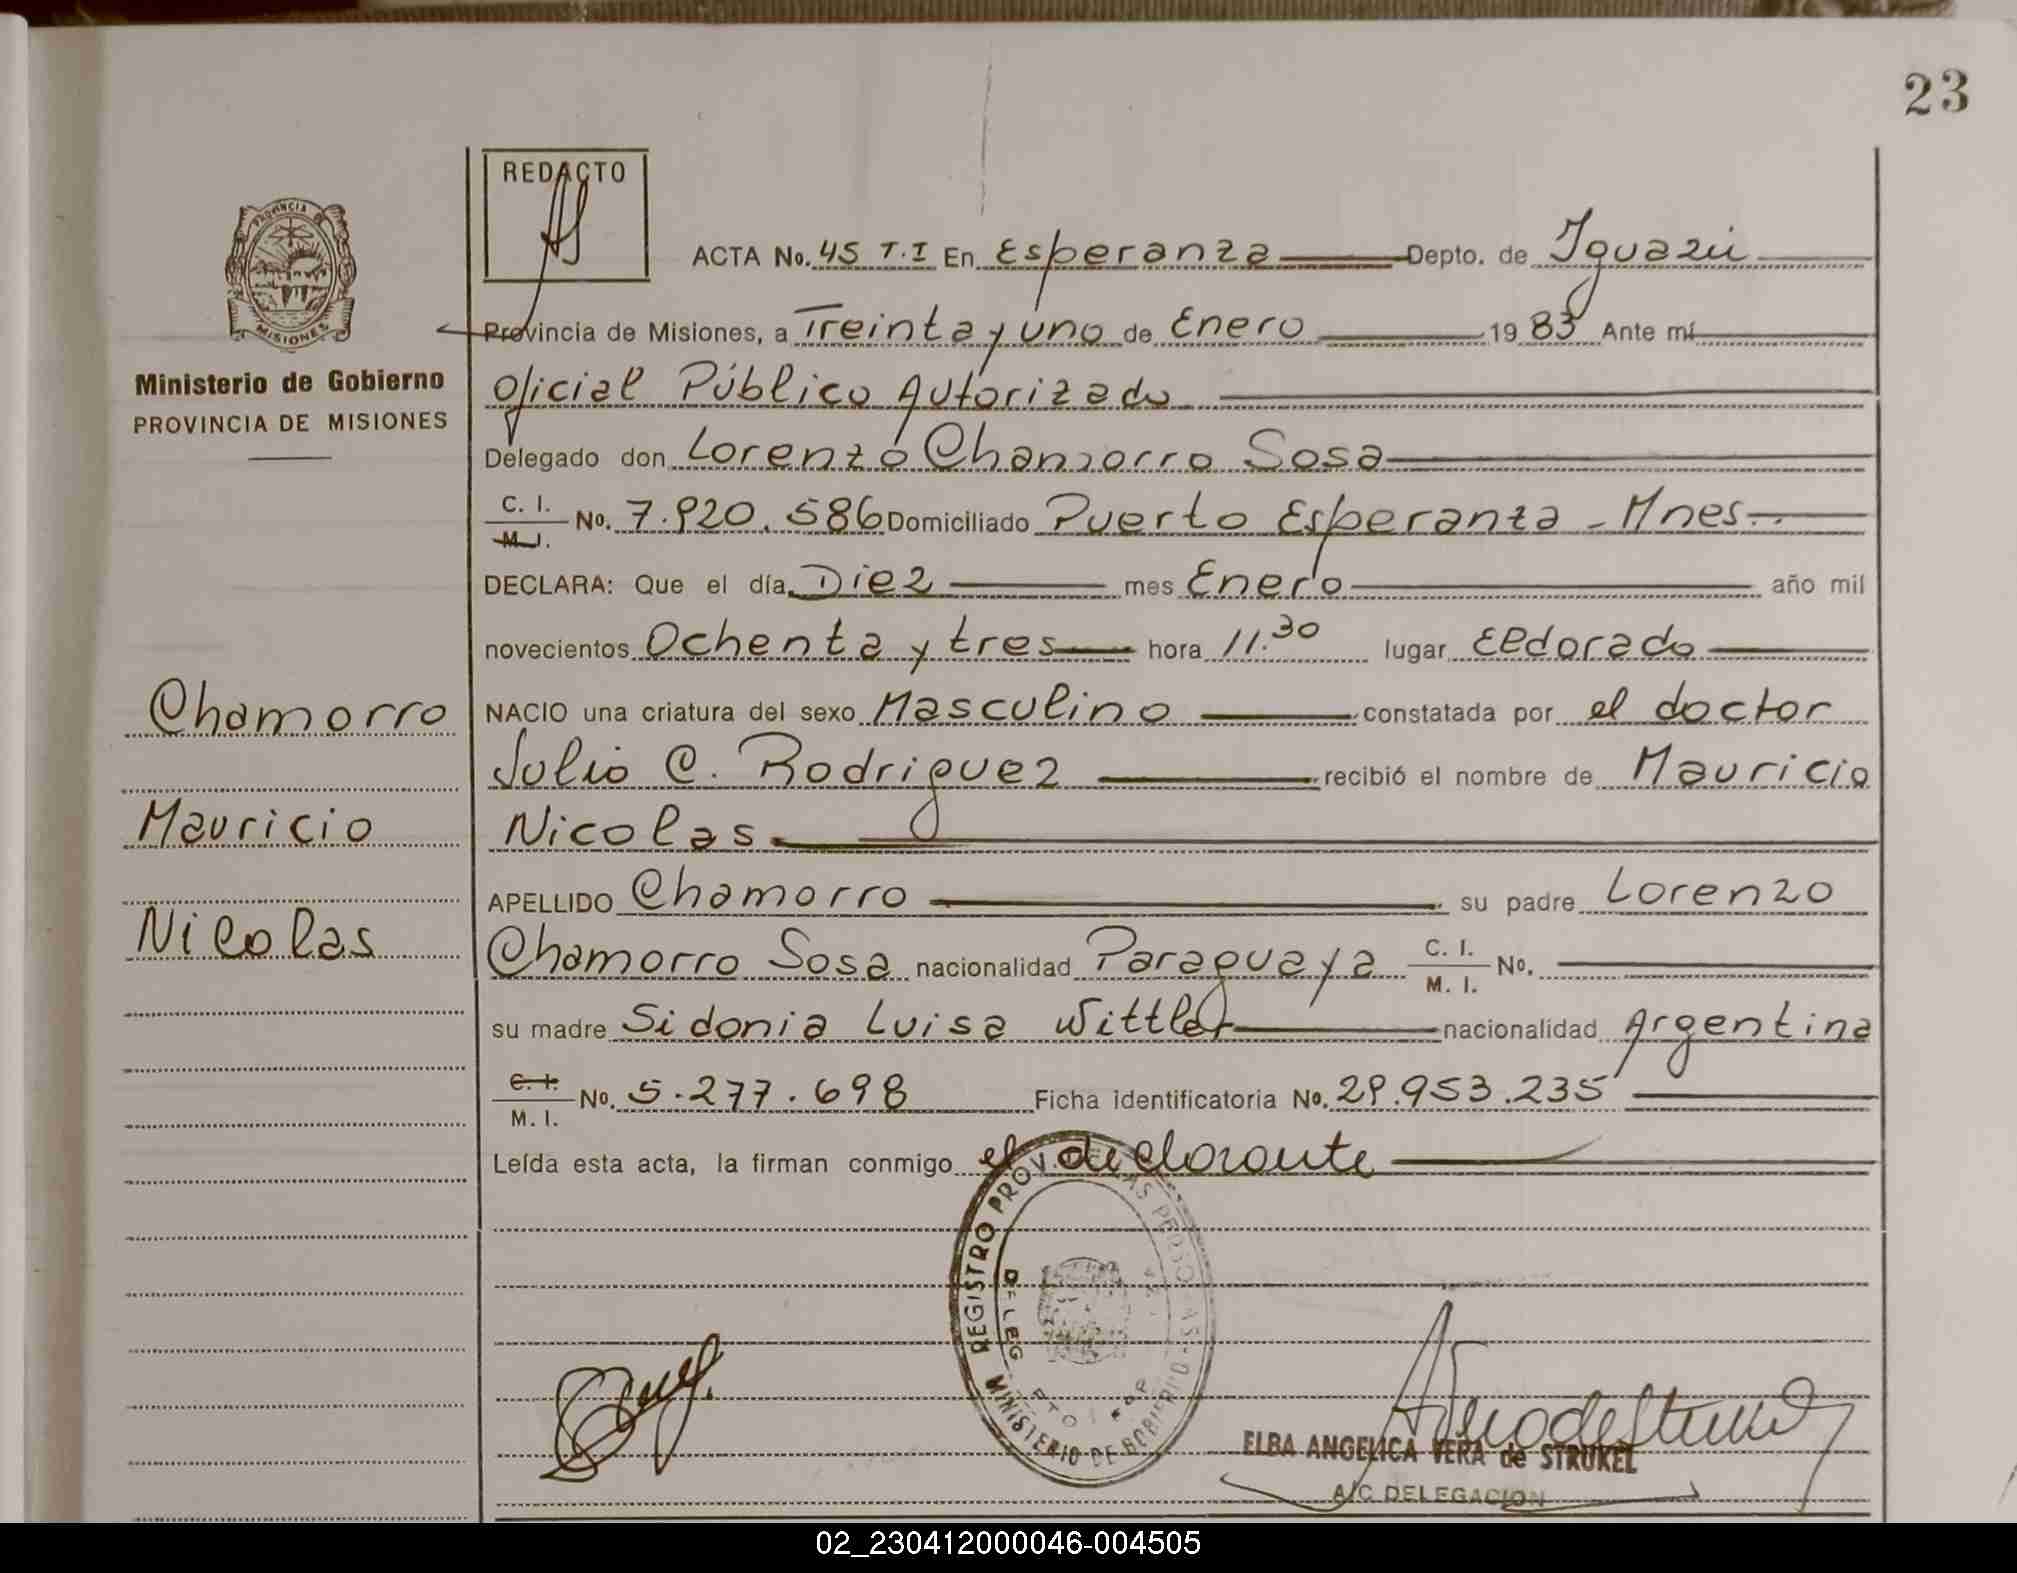 23
REDACTO
PROVINCIA
MISIONES
Ministerio de Gobierno
PROVINCIA DE MISIONES
ACTA No. 45 T.I En Esperanza Depto. de Iguazú
Provincia de Misiones, a Treinta y uno de Enero 1983 Ante mí
Oficial Público Autorizado
Delegado don Lorenzo Chamorro Sosa
C. I. M. I. No. 7.920.586 Domiciliado Puerto Esperanza - Mnes..
DECLARA: Que el día Diez mes Enero año mil
novecientos Ochenta y tres hora 11.30 lugar Eldorado
Chamorro
NACIO una criatura del sexo Masculino constatada por el doctor
Julio C. Rodriguez recibió el nombre de Mauricio
Mauricio
Nicolas
APELLIDO Chamorro su padre Lorenzo
Nicolas
Chamorro Sosa nacionalidad Paraguaya C. I. M. I. No.
su madre Sidonia Luisa Wittler nacionalidad Argentina
C. I. M. I. No. 5.277.698 Ficha identificatoria No. 29.953.235
Leída esta acta, la firman conmigo el declarante
REGISTRO PROV. DE LAS PERSONAS
DELEG
MINISTERIO DE GOBIERNO
ELBA ANGELICA VERA de STRUKEL
A/C DELEGACION
02_230412000046-004505